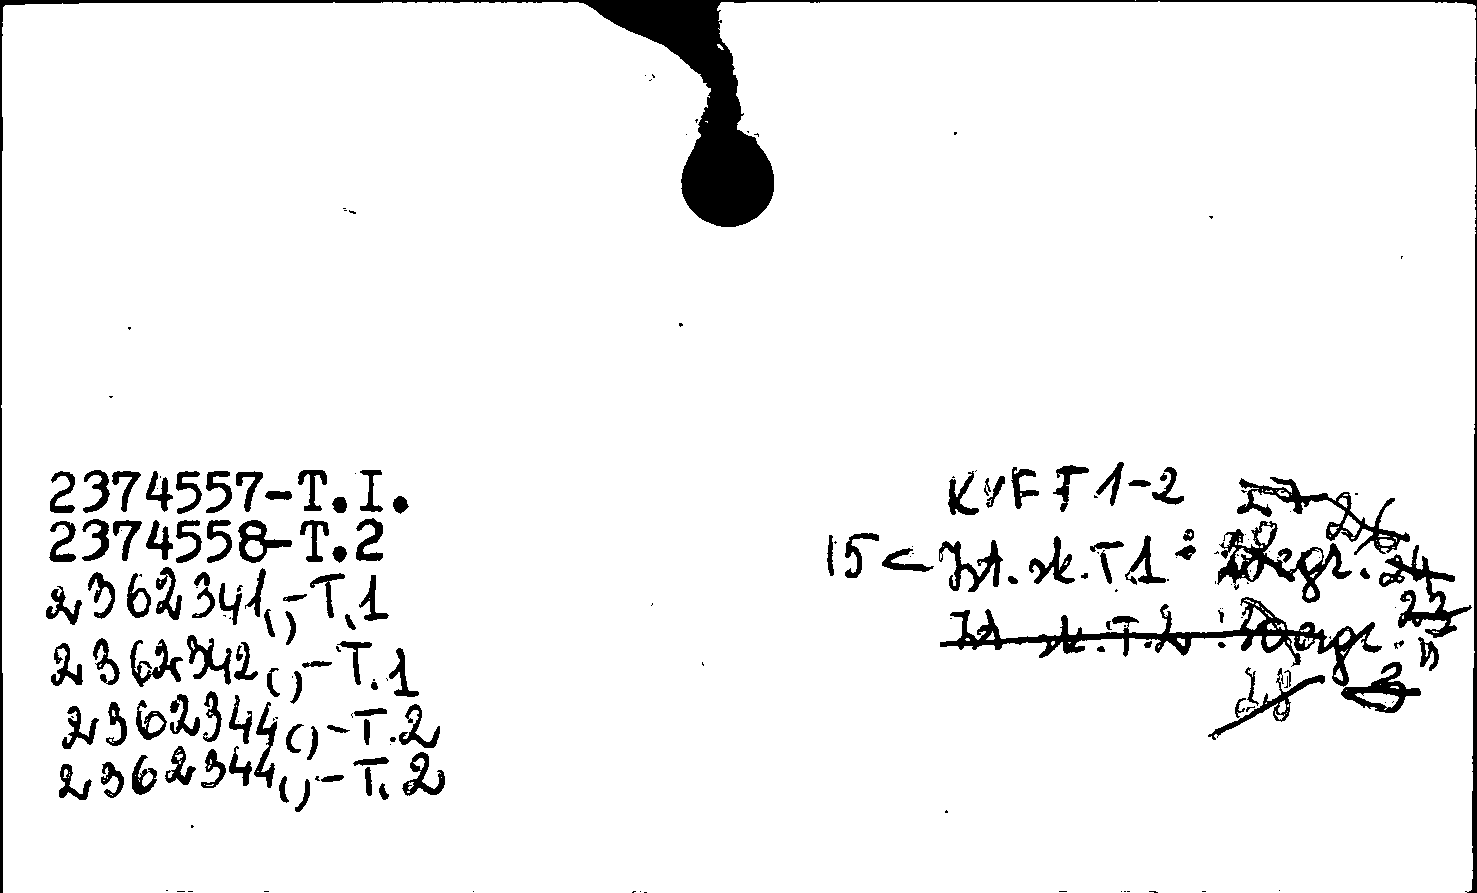 2374557-T.I.
2374558-T.2
2362341,()-T.1
2362342()-T.1
2362344()-T.2
2362344()-T.2
KVF T 1-2 27 26
15 < Izt. sk. T.1: egz. 24
Izt. sk. T.2: 30 egz. 23
28 3